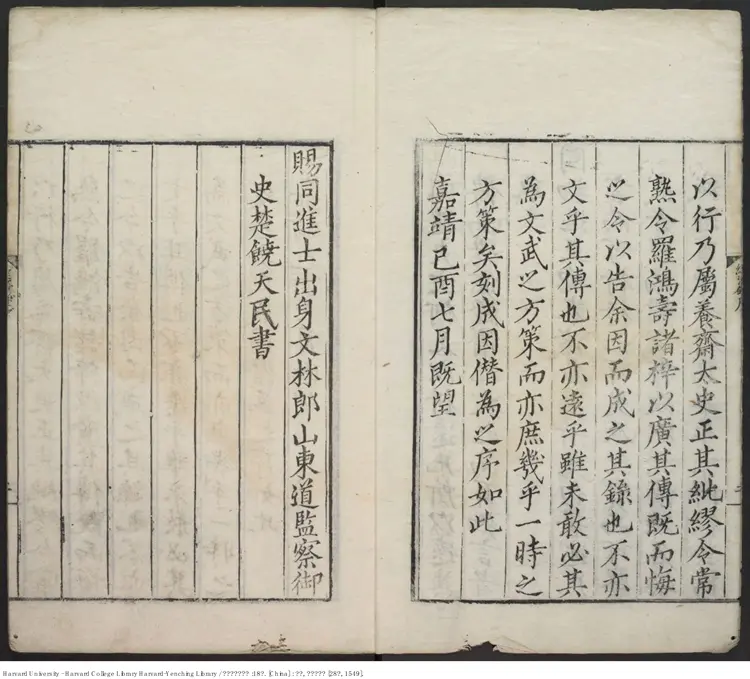 以行乃屬養齋太史正其紕繆令常
熟令羅鴻壽諸梓以廣其傳既而悔
之令以告余因而成之其錄也不亦
文乎其傳也不亦遠乎雖未敢必其
為文武之方策而亦庶幾乎一時之
方策矣刻成因僭為之序如此
嘉靖己酉七月既望
賜同進士出身文林郎山東道監察御
史楚饒天民書
Harvard University - Harvard College Library Harvard-Yenching Library / ??????? :18?. [China] : ??, ????? [28?, 1549].